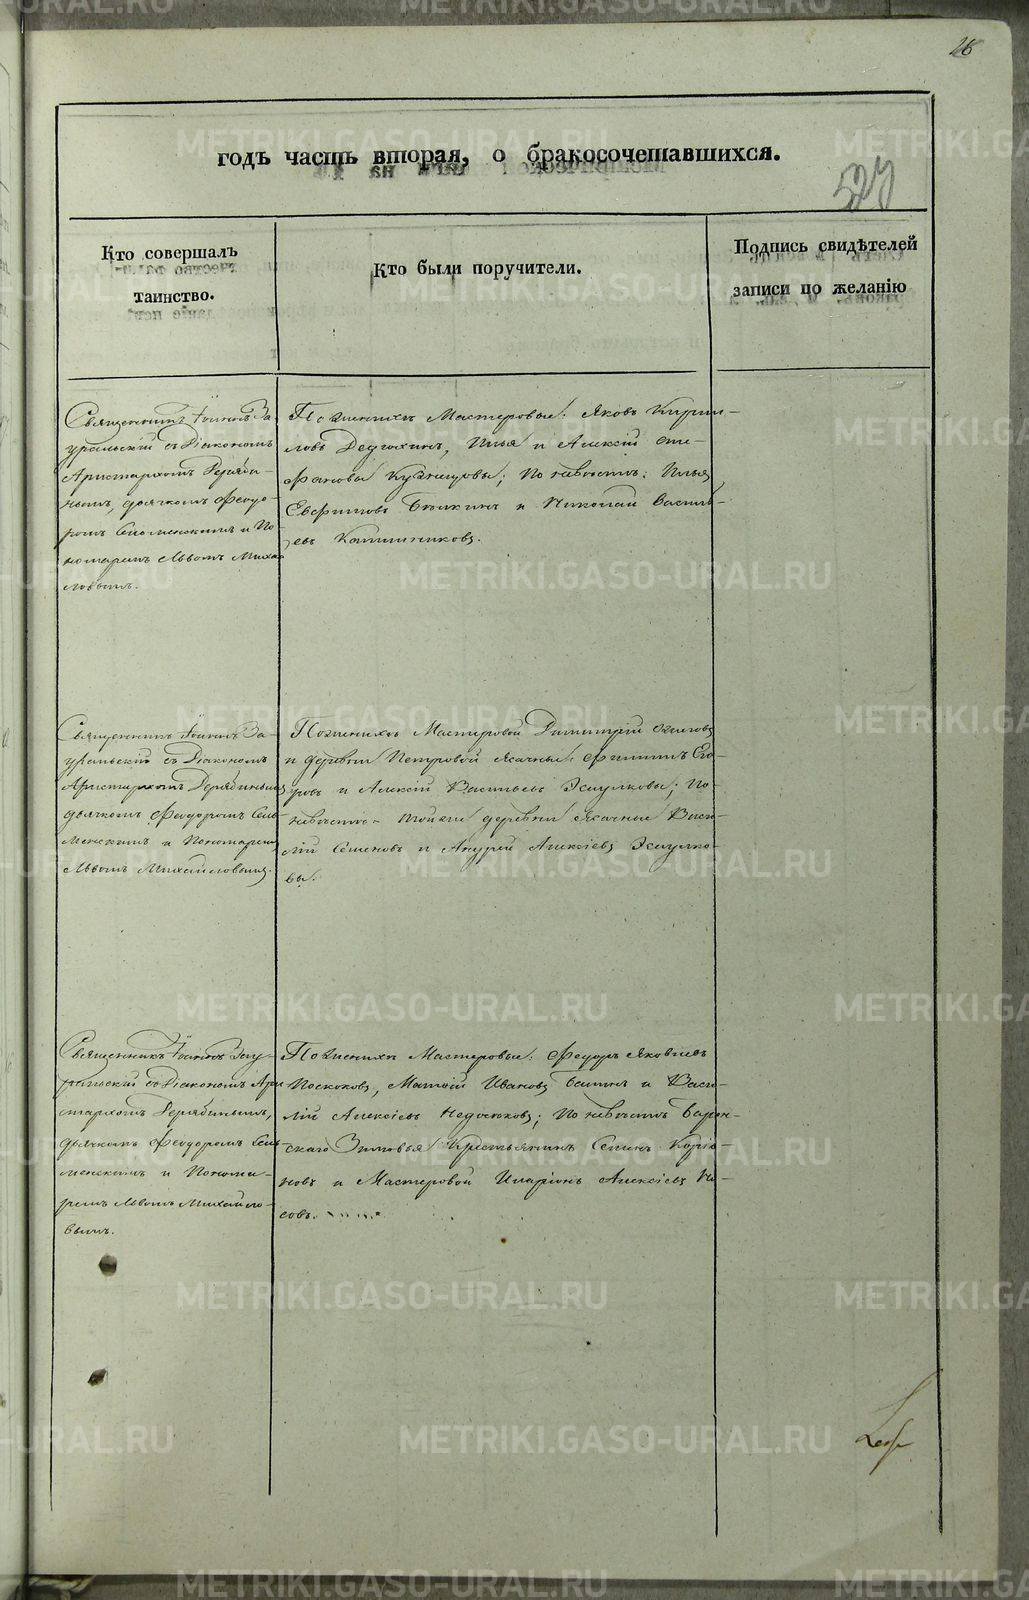 26
годъ часть вторая, о бракосочетавшихся.
527
Кто совершалъ
таинство.
Кто были поручители.
Подпись свидѣтелей
записи по желанію
Священникъ Іоаннъ За-
уральскій съ Діакономъ
Аристархомъ Деряби-
нымъ, дьячкомъ Ѳеодо-
ромъ Семенскимъ и По-
номаремъ Львомъ Михай-
ловымъ.
По женихѣ Мастеровые: Яковъ Кирил-
ловъ Дедюхинъ, Илья и Алексій Сте-
фановы Кузнецовы; По невѣстѣ: Илья
Евфимовъ Бѣлкинъ и Николай Василь-
евъ Калинниковъ.
Священникъ Іоаннъ За-
уральскій съ Діакономъ
Аристархомъ Дерябинымъ
дьячкомъ Ѳеодоромъ Сем-
менскимъ и Пономаремъ
Львомъ Михайловымъ.
По женихѣ Мастеровой Димитрій
и деревни Петровой ясачные: Филиппъ Его-
ровъ и Алексій Васильевъ; По
невѣстѣ - той же деревни ясачные Васи-
лій Семеновъ и Андрей Алексіевъ
вы.
Священникъ Іоаннъ Зау-
ральскій съ Діакономъ Ари-
стархомъ Дерябинымъ,
дьячкомъ Ѳеодоромъ Сем-
менскимъ и Понома-
ремъ Львомъ Михайло-
вымъ.
По женихѣ Мастеровые: Ѳедоръ Яковлевъ
Поскоковъ, Матвій Ивановъ и Васи-
лій Алексіевъ Недосѣковъ; По невѣстѣ
скаго Зимовья Крестьянинъ
новъ и Мастеровой Иларіонъ Алексіевъ Но-
совъ.